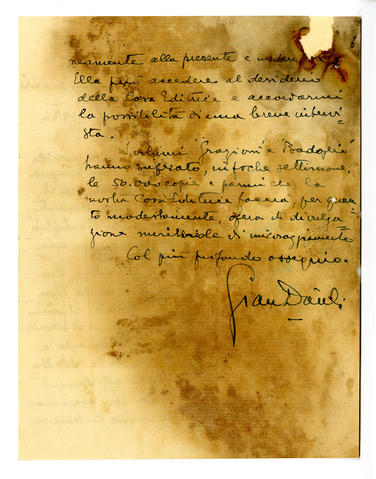 neamente alla presente e vedere
Ella può accedere al desiderio
della Casa Editrice e accordarmi
la possibilità di una breve intervi-
sta.
I volumi "Graziani" e "Badoglio"
hanno superato, in poche settimane,
le 50.000 copie e parmi che la
nostra Casa Editrice faccia, per quan-
to modestamente, opera di divulga-
zione meritevole di incoraggiamento
Col più profondo ossequio.
Gian Dàuli